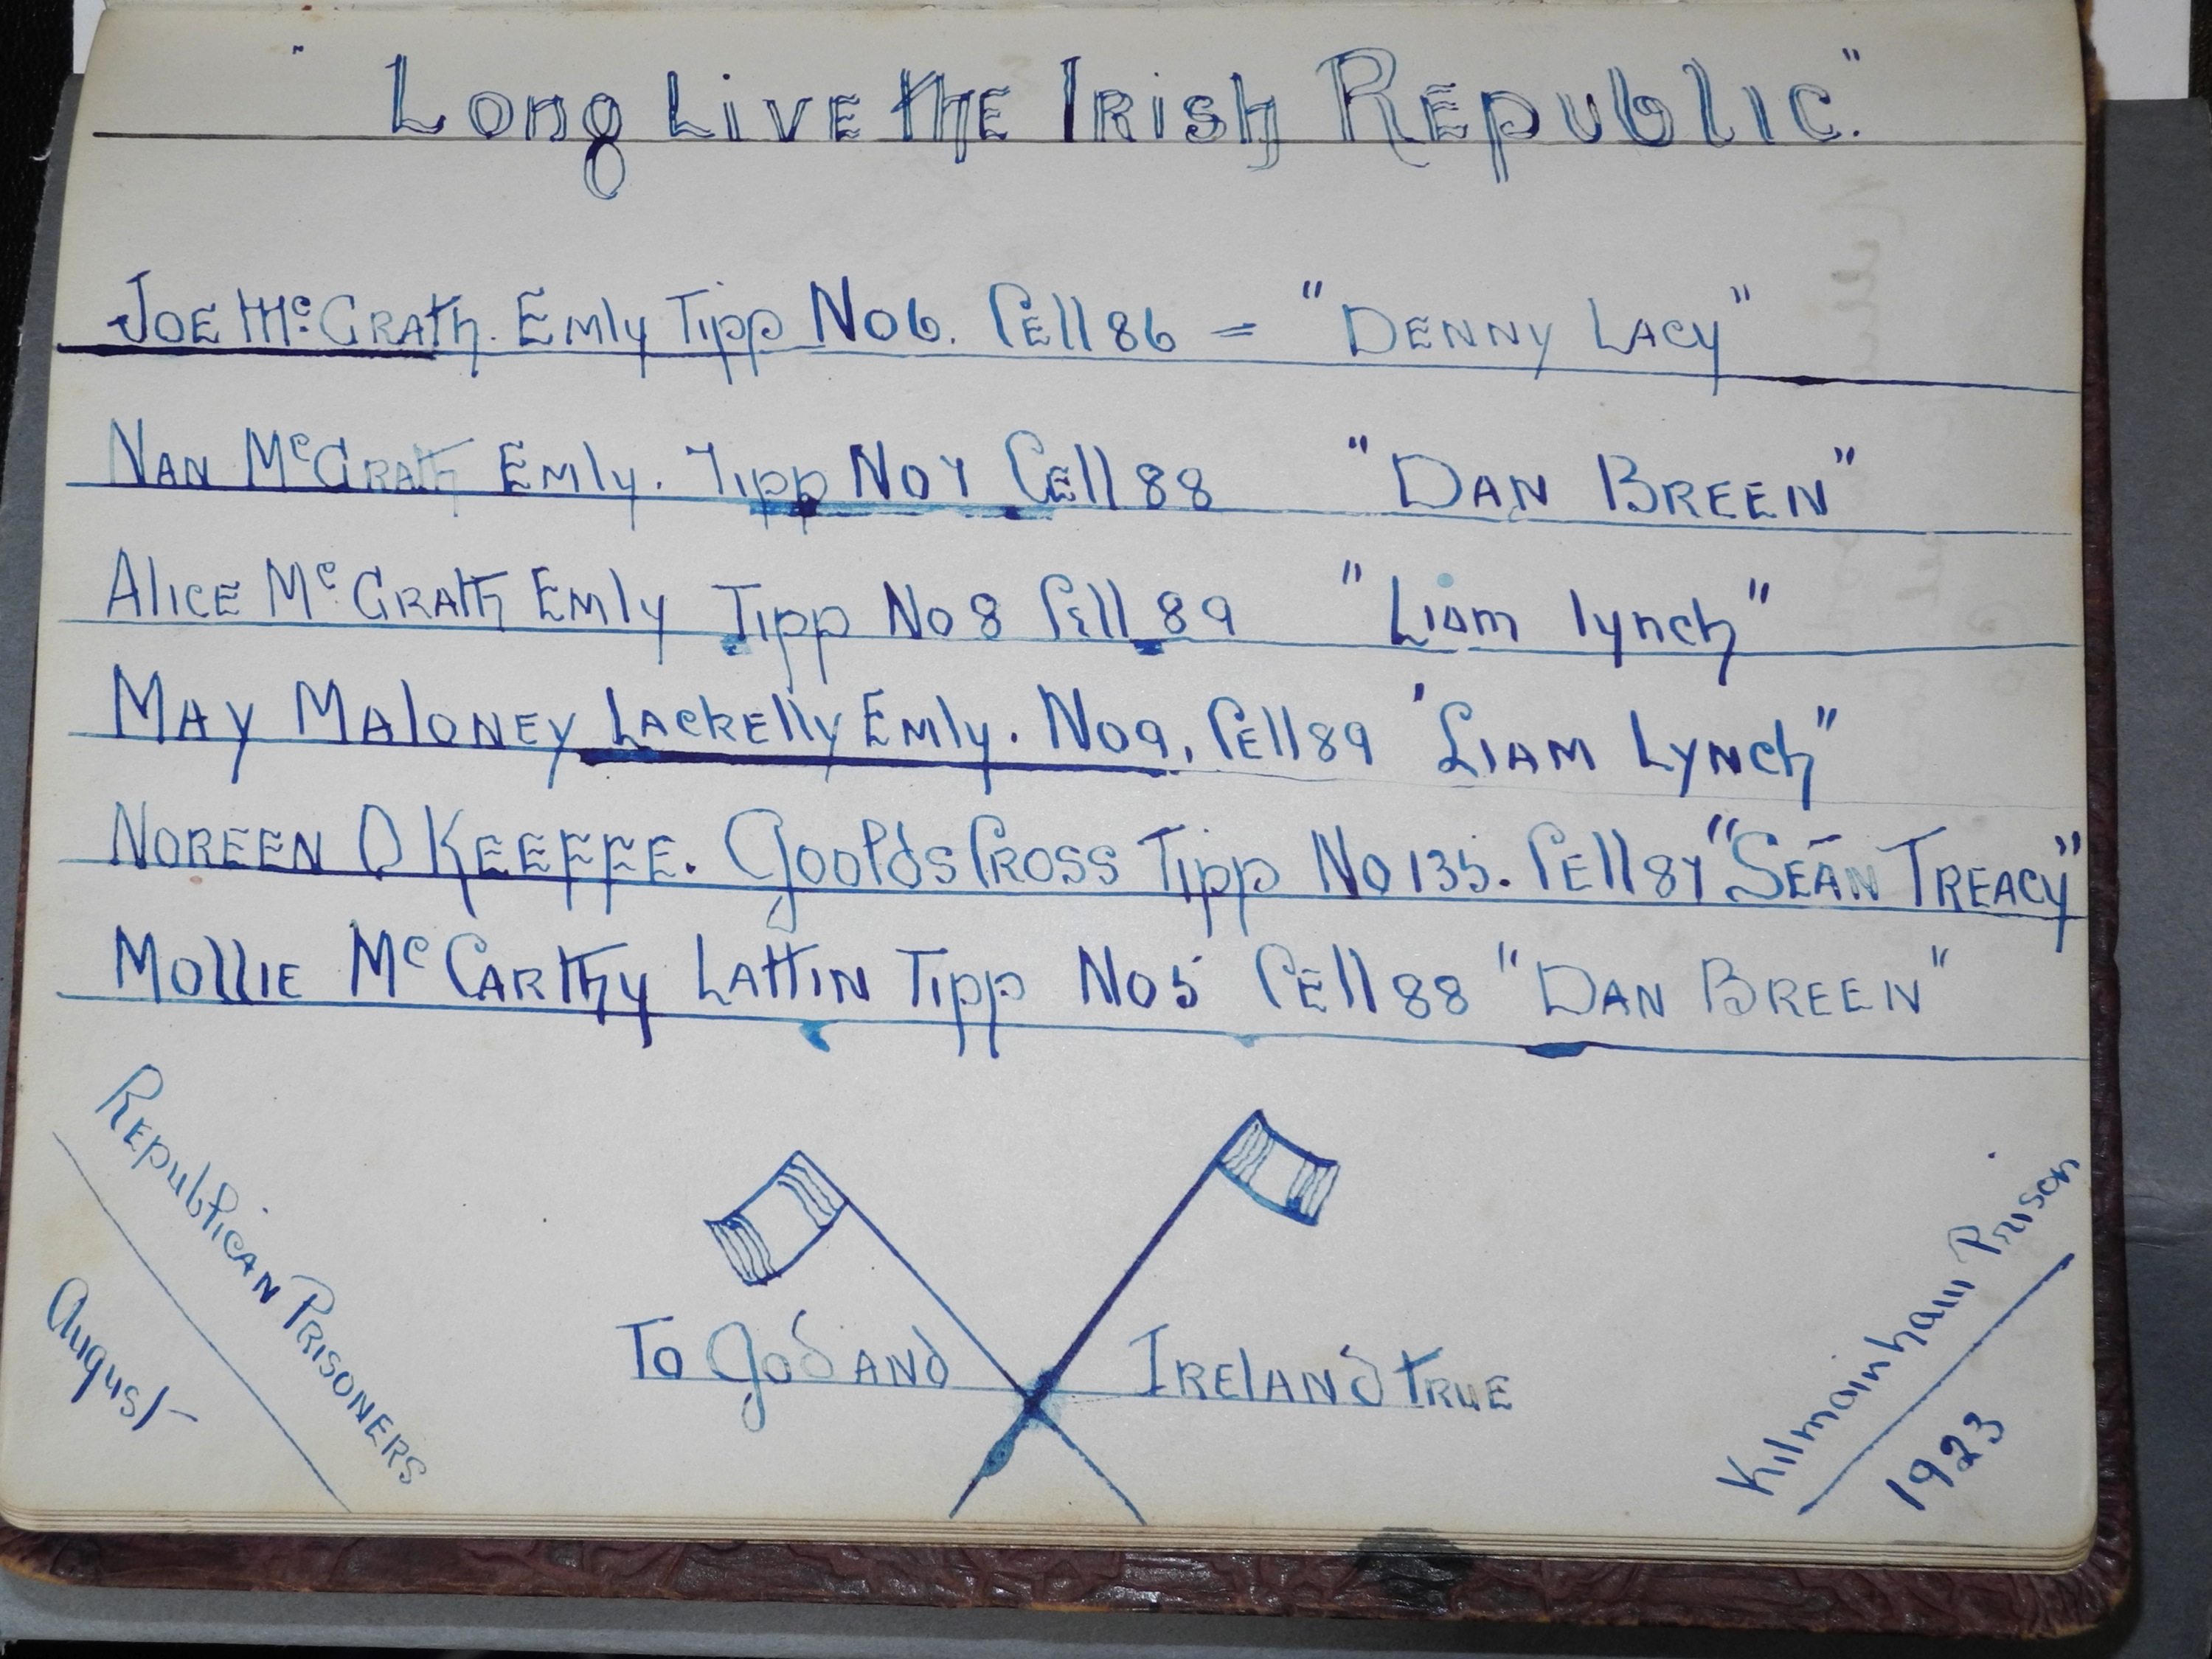 "Long Live the Irish Republic."
Joe McGrath. Emly Tipp No 6. Cell 86 = "Denny Lacy"
Nan McGrath Emly. Tipp No 7 Cell 88 "Dan Breen"
Alice McGrath Emly Tipp No 8 Cell 89 "Liam Lynch"
May Maloney Lackelly Emly. No 9. Cell 89 "Liam Lynch"
Noreen O Keeffe. Goolds Cross Tipp No 135. Cell 87 "Seán Treacy"
Mollie McCarthy Lattin Tipp No 5 Cell 88 "Dan Breen"
Republican Prisoners
August
To God and Ireland True
Kilmainham Prison
1923